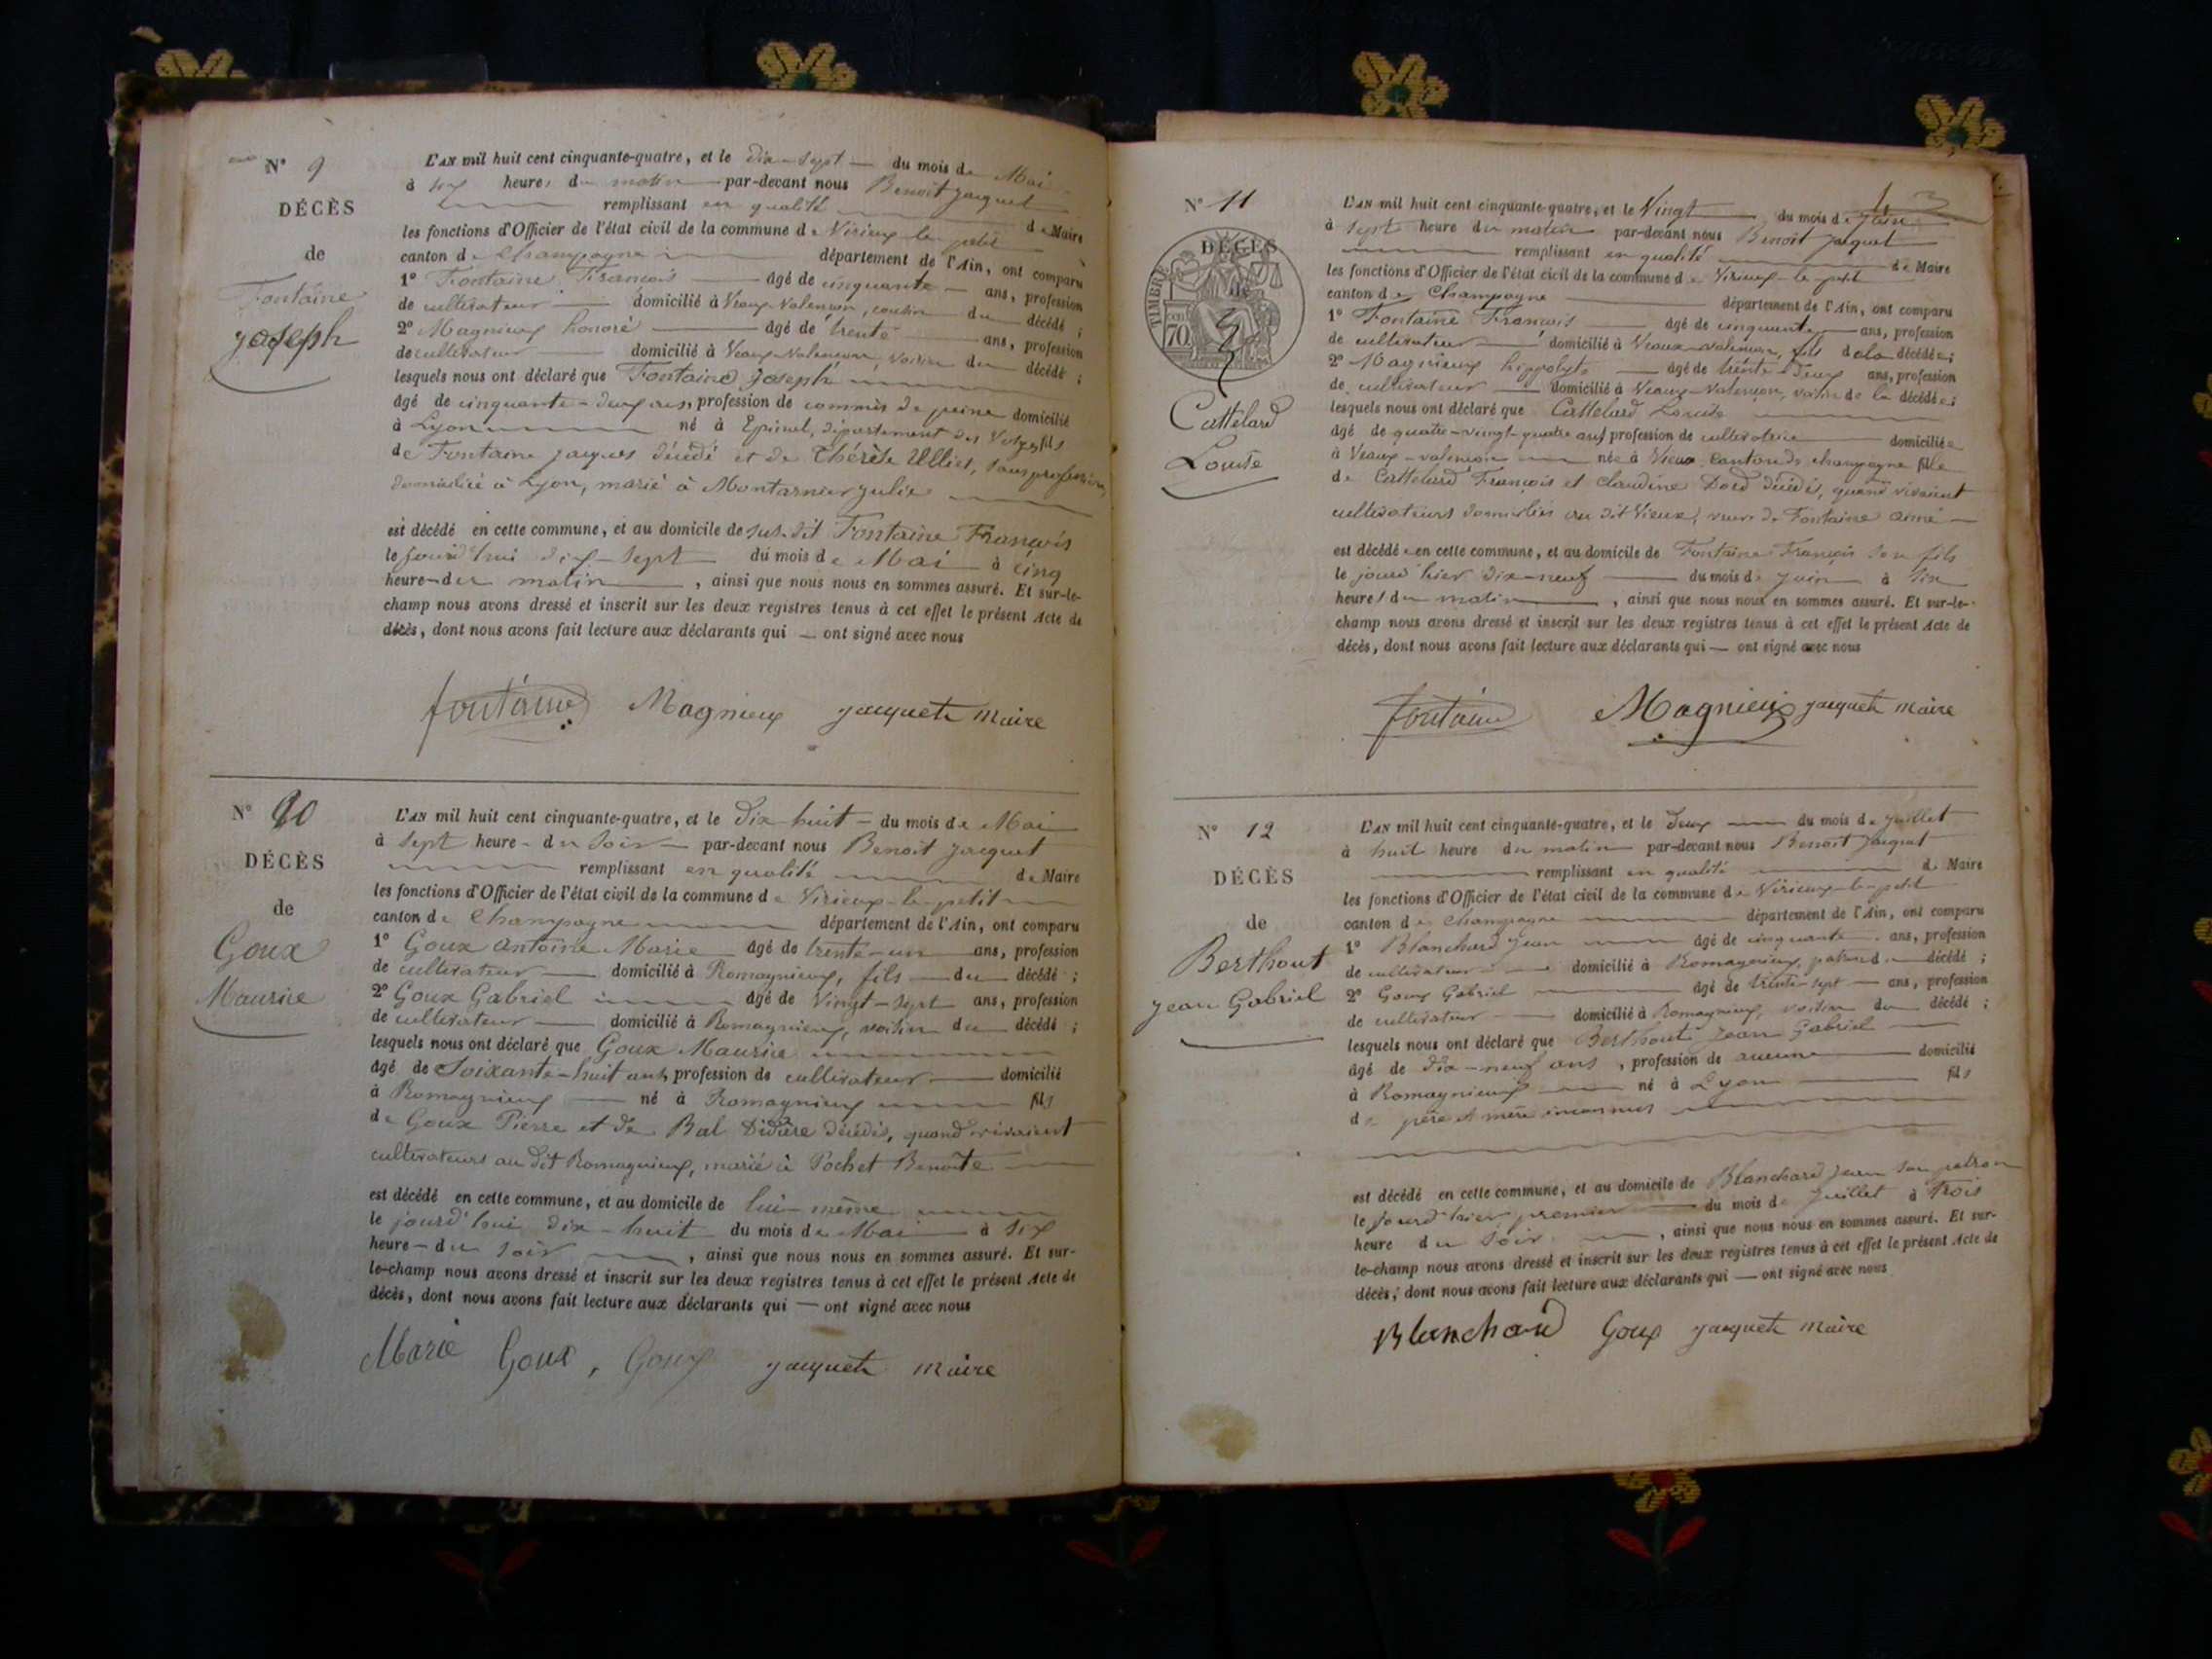 N° 9
DÉCÈS
de
Fontaine
Joseph
L'AN mil huit cent cinquante-quatre, et le dix-sept du mois de Mai
à six heures du matin par-devant nous Benoit Jacquet
remplissant en qualité de Maire
les fonctions d'Officier de l'état civil de la commune de Virieux-le-petit
canton de Champagne département de l'Ain, ont comparu
1° Fontaine François âgé de cinquante ans, profession
de cultivateur domicilié à Vaux-Valencion, cousin du décédé ;
2° Magnieux honoré âgé de trente ans, profession
de cultivateur domicilié à Veaux-Valencion, voisin du décédé ;
lesquels nous ont déclaré que Fontaine Joseph
âgé de cinquante-deux ans, profession de commis de peine domicilié
à Lyon né à Epinal, département des Vosges, fils
de Fontaine Jacques décédé et de Thérèse Ulliet, sans profession,
domiciliée à Lyon, marié à Montarnier Julie
est décédé en cette commune, et au domicile de susdit Fontaine François
le jourd'hui dix-sept du mois de Mai à cinq
heure du matin, ainsi que nous nous en sommes assuré. Et sur-le-
champ nous avons dressé et inscrit sur les deux registres tenus à cet effet le présent Acte de
décès, dont nous avons fait lecture aux déclarants qui ont signé avec nous
fontaine Magnieux jacquet maire
N° 10
DÉCÈS
de
Goux
Maurice
L'AN mil huit cent cinquante-quatre, et le Dix-huit du mois de Mai
à sept heure du soir par-devant nous Benoit Jacquet
remplissant en qualité de Maire
les fonctions d'Officier de l'état civil de la commune de Virieux-le-petit
canton de Champagne département de l'Ain, ont comparu
1° Goux Antoine Marie âgé de trente-un ans, profession
de cultivateur domicilié à Romagnieux, fils du décédé ;
2° Goux Gabriel âgé de vingt-sept ans, profession
de cultivateur domicilié à Romagnieux, voisin du décédé ;
lesquels nous ont déclaré que Goux Maurice
âgé de Soixante-huit ans, profession de cultivateur domicilié
à Romagnieux né à Romagnieux fils
de Goux Pierre et de Bal Didière décédés, quand vivaient
cultivateurs au dit Romagnieux, marié à Pochet Benoîte
est décédé en cette commune, et au domicile de lui-même
le jourd'hui dix-huit du mois de Mai à six
heure du soir, ainsi que nous nous en sommes assuré. Et sur-
le-champ nous avons dressé et inscrit sur les deux registres tenus à cet effet le présent Acte de
décès, dont nous avons fait lecture aux déclarants qui — ont signé avec nous
Marie Goux, Goux jacquet maire
13
N° 11
DÉCÈS
de
TIMBRE
70
Cattelard
Louise
L'AN mil huit cent cinquante-quatre, et le Vingt du mois de Juin
à sept heure du matin par-devant nous Benoit Jacquet
remplissant en qualité de Maire
les fonctions d'Officier de l'état civil de la commune de Virieux-le-petit
canton de Champagne département de l'Ain, ont comparu
1° Fontaine François âgé de cinquante ans, profession
de cultivateur domicilié à Veaux-Valencion, fils de la décédée ;
2° Magnieux hippolyte âgé de trente-deux ans, profession
de cultivateur domicilié à Veaux-Valencion, voisin de la décédée ;
lesquels nous ont déclaré que Cattelard Louise
âgé de quatre-vingt-quatre ans profession de cultivatrice domiciliée
à Veaux-Valencion née à Vieux canton de champagne fille
de Cattelard François et Claudine Dord décédés, quand vivaient
cultivateurs domiciliés au dit Vieux, veuve de Fontaine anné
est décédée en cette commune, et au domicile de Fontaine François son fils
le jourd'hier dix-neuf du mois de juin à six
heures du matin, ainsi que nous nous en sommes assuré. Et sur-le-
champ nous avons dressé et inscrit sur les deux registres tenus à cet effet le présent Acte de
décès, dont nous avons fait lecture aux déclarants qui — ont signé avec nous
fontaine Magnieux jacquet maire
N° 12
DÉCÈS
de
Berthout
Jean Gabriel
L'AN mil huit cent cinquante-quatre, et le deux du mois de Juillet
à huit heure du matin par-devant nous Benoit Jacquet
remplissant en qualité de Maire
les fonctions d'Officier de l'état civil de la commune de Virieux-le-petit
canton de Champagne département de l'Ain, ont comparu
1° Blanchard Jean âgé de cinquante ans, profession
de cultivateur domicilié à Romagnieux, patron du décédé ;
2° Goux Gabriel âgé de trente-sept ans, profession
de cultivateur domicilié à Romagnieux, voisin du décédé ;
lesquels nous ont déclaré que Berthout Jean Gabriel
âgé de dix-neuf ans, profession de aucune domicilié
à Romagnieux né à Lyon fils
de père et mère inconnus
est décédé en cette commune, et au domicile de Blanchard Jean son patron
le jourd'hier premier du mois de Juillet à trois
heure du soir, ainsi que nous nous en sommes assuré. Et sur-
le-champ nous avons dressé et inscrit sur les deux registres tenus à cet effet le présent Acte de
décès, dont nous avons fait lecture aux déclarants qui — ont signé avec nous
Blanchard Goux jacquet maire